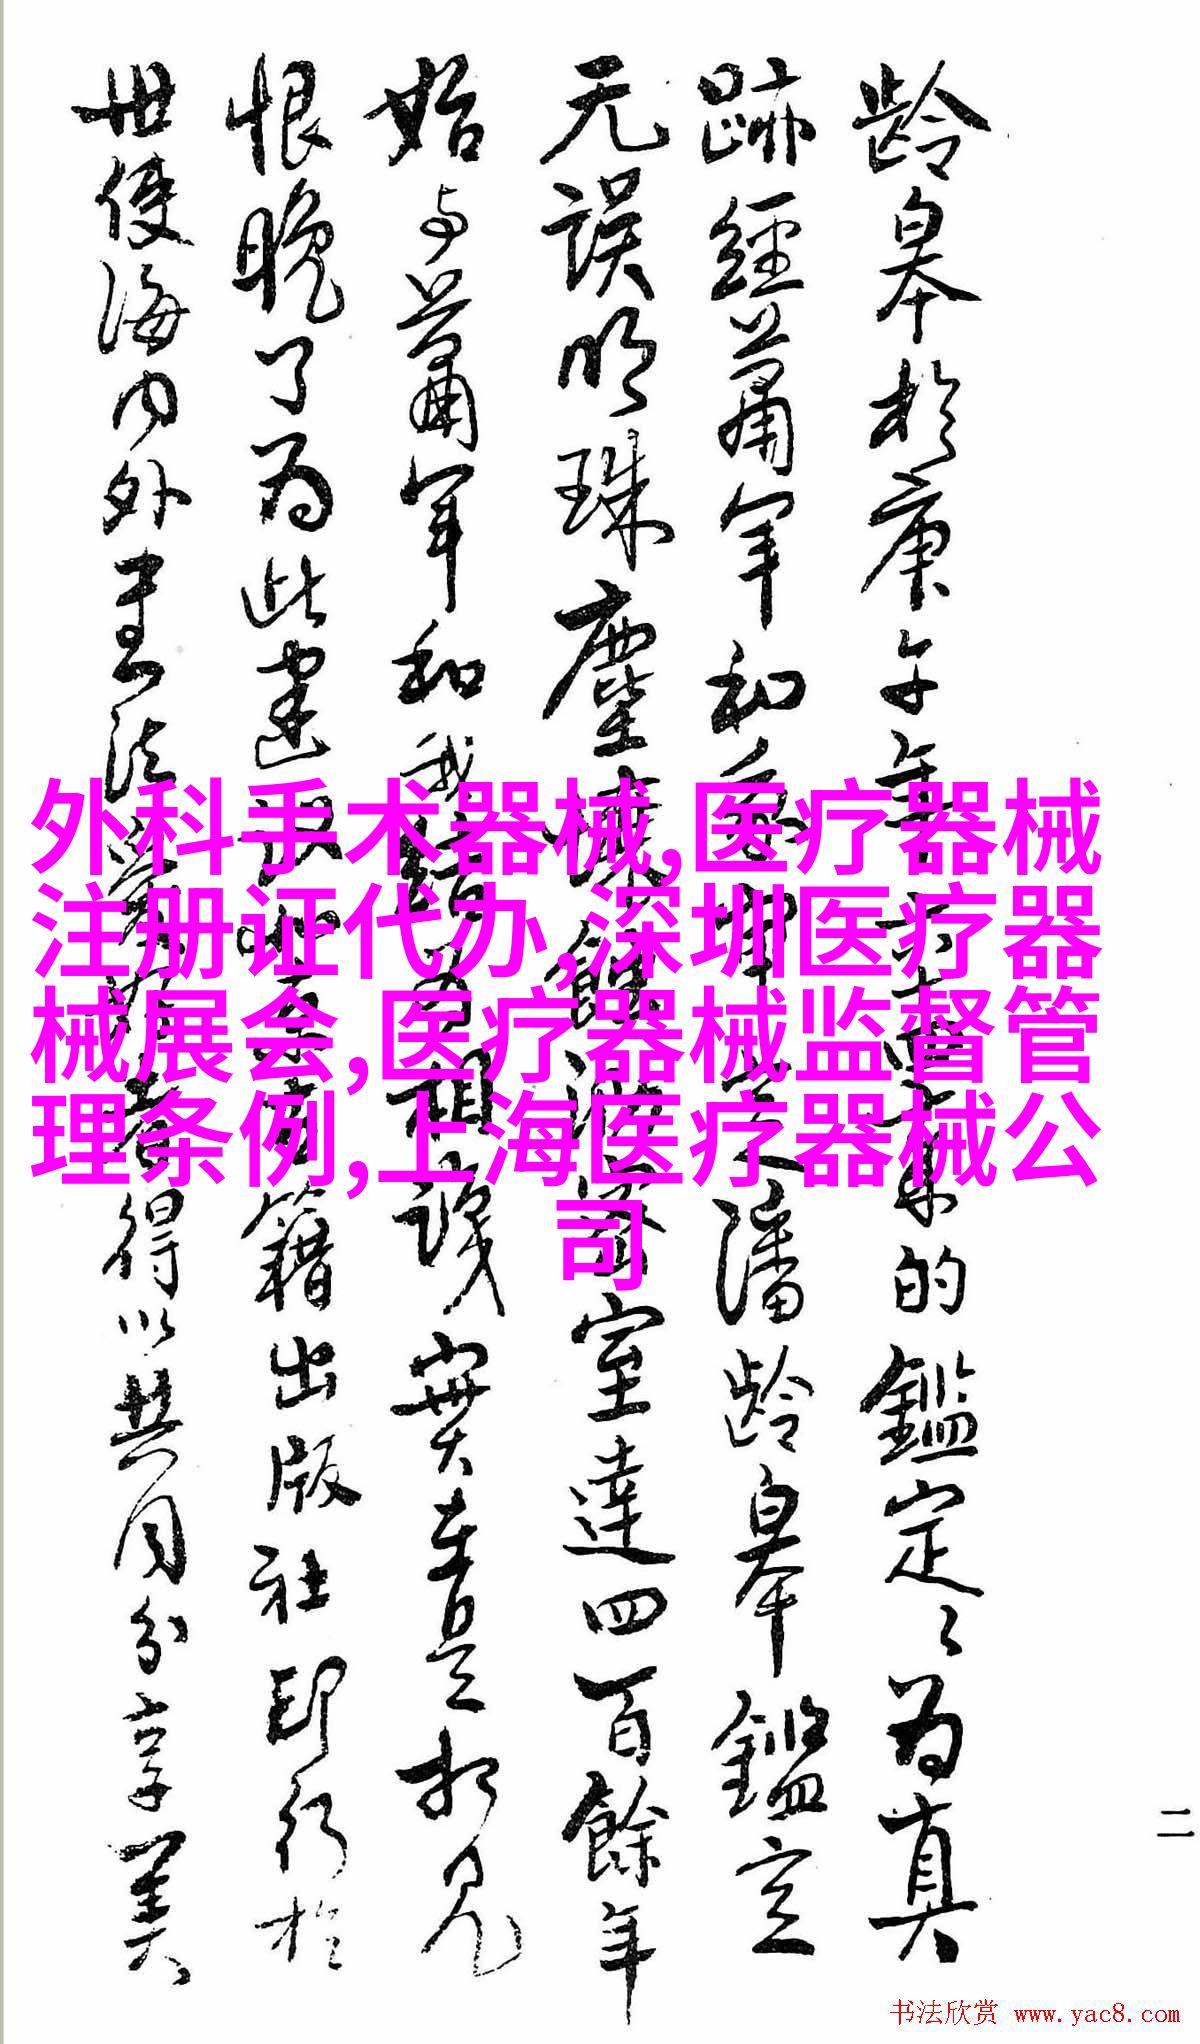 龄皋於庚午年
的鑑定之为真
跡經萧军和
之潘龄皋鑑定
无误明珠塵埋
室達四百餘年
始与萧军和我
相識實在是相见
恨晚了为此建议
籍出版社印行於
世使海内外書法
得以共同分享美
外科手术器械,医疗器械
注册证代办,深圳医疗器
械展会,医疗器械监督管
理条例,上海医疗器械公
司
二
书法欣赏 www.yac8.com